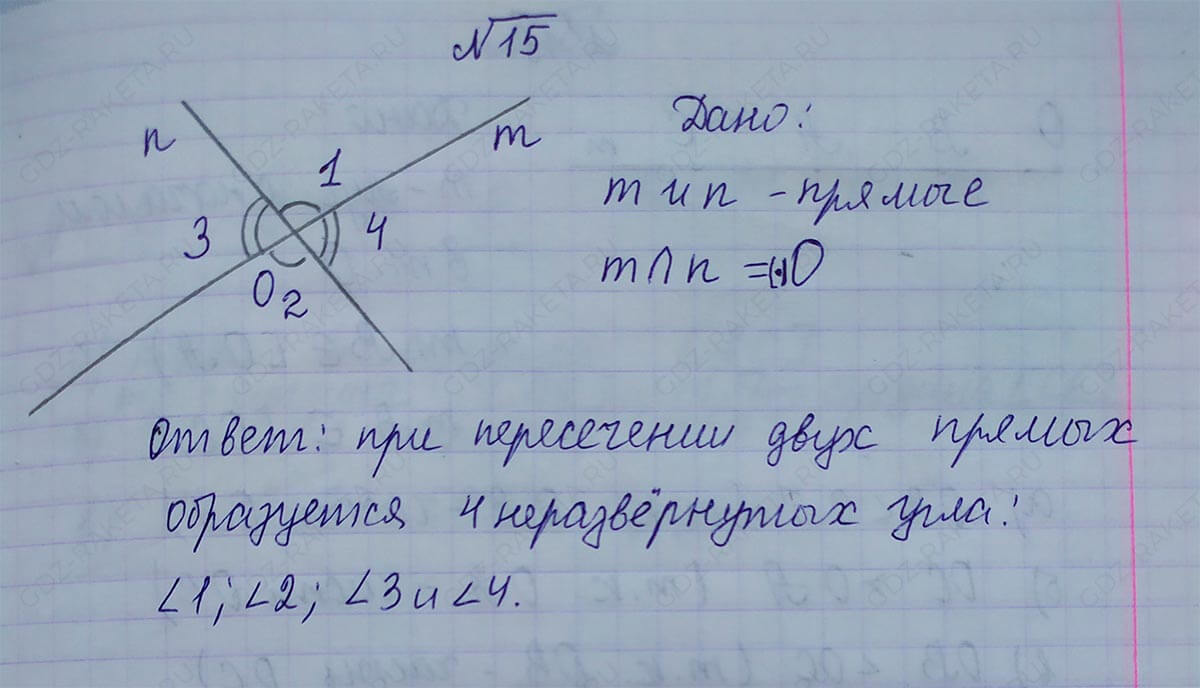 №15
n
m
1
3
4
O
2
Дано:
m и n - прямые
m∩n =(·)O
Ответ: при пересечении двух прямых
образуется 4 неразвёрнутых угла:
∠1; ∠2; ∠3 и ∠4.
GDZ-RAKETA.RU